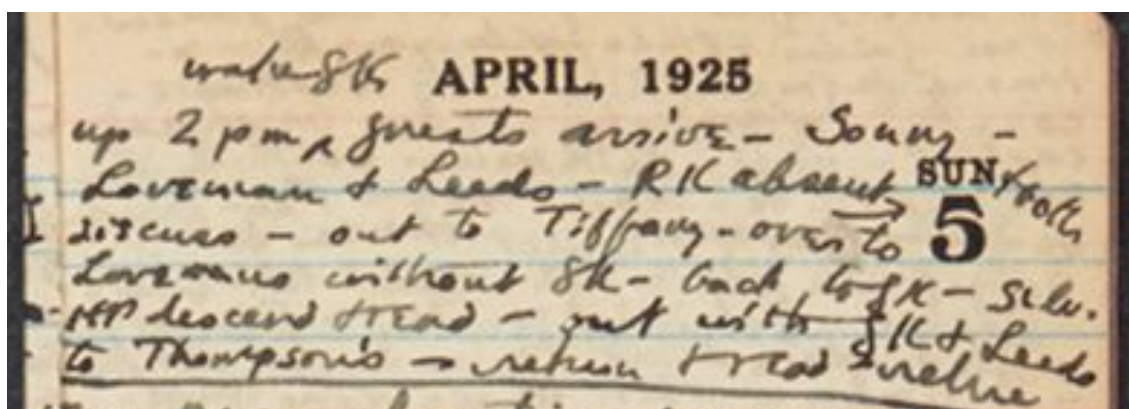 wake GK APRIL, 1925
up 2 pm, guests arrive — Sonny —
Loveman & Leeds — RK absent SUN, tooth
discuss — out to Tiffany — over to 5
Lovemans without GK — back to GK —
HP descend & read — out with GK & Leeds
to Thompson's — return & read — retire